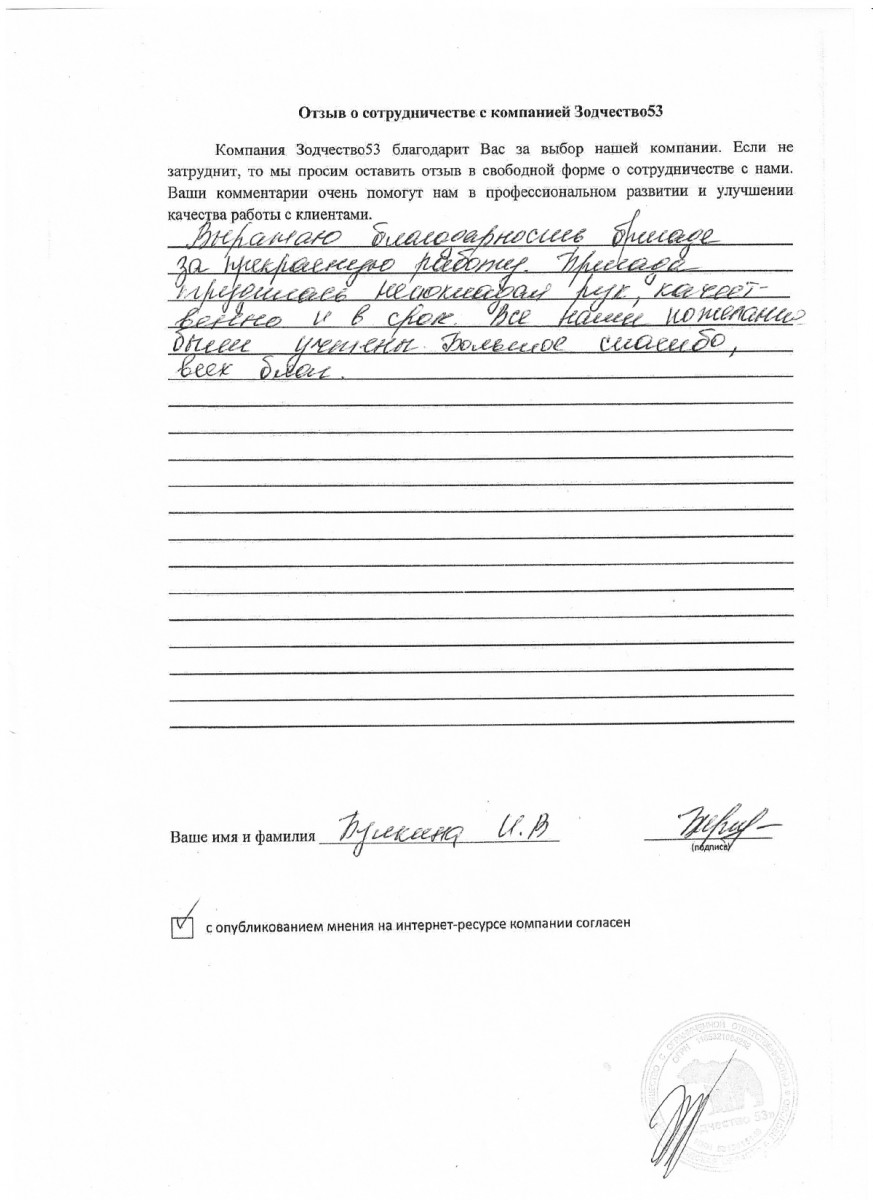 Отзыв о сотрудничестве с компанией Зодчество53
Компания Зодчество53 благодарит Вас за выбор нашей компании. Если не
затруднит, то мы просим оставить отзыв в свободной форме о сотрудничестве с нами.
Ваши комментарии очень помогут нам в профессиональном развитии и улучшении
качества работы с клиентами.
Выражаю благодарность бригаде
за прекрасную работу. Бригада
трудилась непокладая рук, качест-
венно и в срок. Все наши пожелания
были учтены. Большое спасибо,
всех благ.
Ваше имя и фамилия И.В
(подпись)
с опубликованием мнения на интернет-ресурсе компании согласен